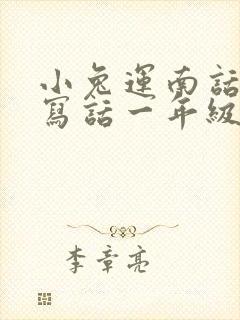 小兔運南話
寫話一年級
李章亮